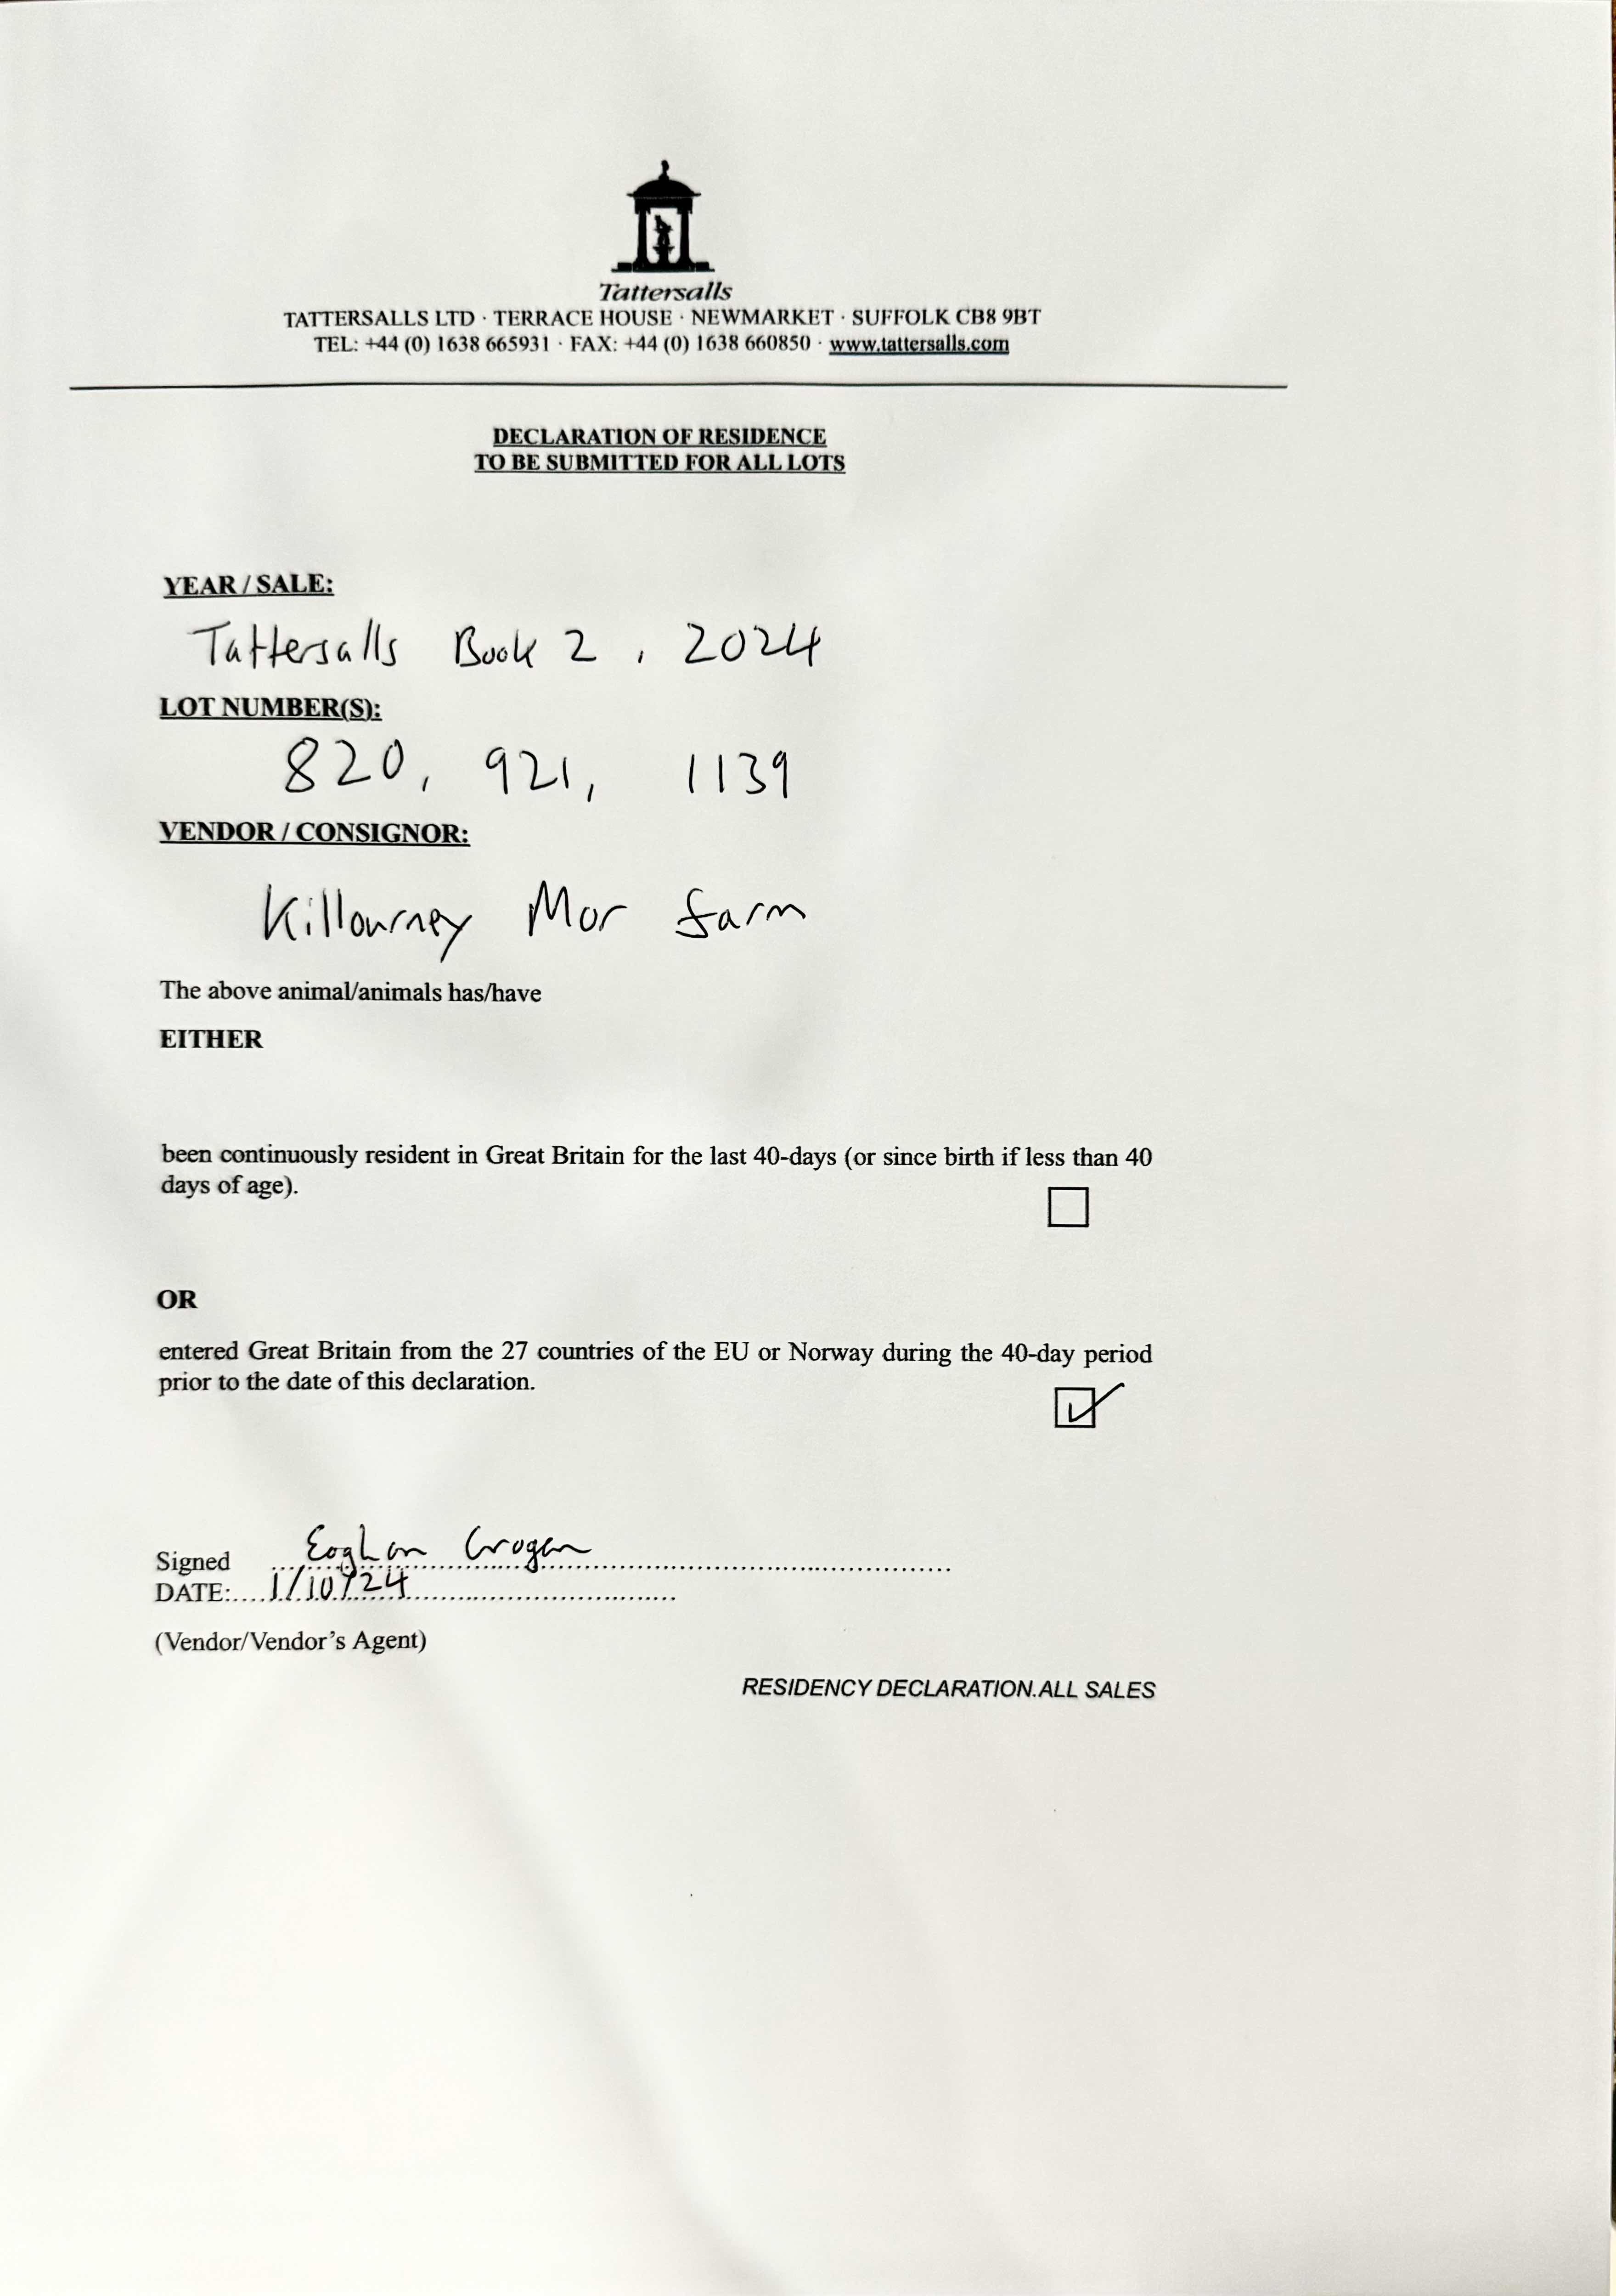 Tattersalls
TATTERSALLS LTD · TERRACE HOUSE · NEWMARKET · SUFFOLK CB8 9BT
TEL: +44 (0) 1638 665931 · FAX: +44 (0) 1638 660850 · www.tattersalls.com
DECLARATION OF RESIDENCE
TO BE SUBMITTED FOR ALL LOTS
YEAR / SALE:
Tattersalls Book 2, 2024
LOT NUMBER(S):
820, 921, 1139
VENDOR / CONSIGNOR:
Killourney Mor farm
The above animal/animals has/have
EITHER
been continuously resident in Great Britain for the last 40-days (or since birth if less than 40
days of age).
OR
entered Great Britain from the 27 countries of the EU or Norway during the 40-day period
prior to the date of this declaration.
Signed Eoghan Grogan
DATE: 1/10/24
(Vendor/Vendor's Agent)
RESIDENCY DECLARATION.ALL SALES